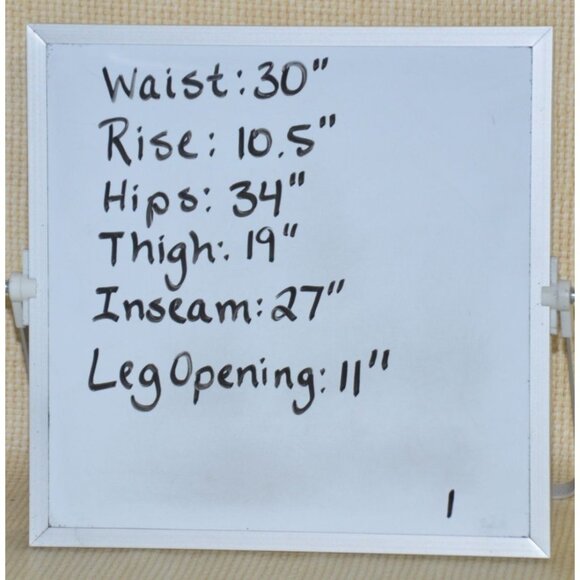 Waist: 30"
Rise: 10.5"
Hips: 34"
Thigh: 19"
Inseam: 27"
Leg Opening: 11"
1